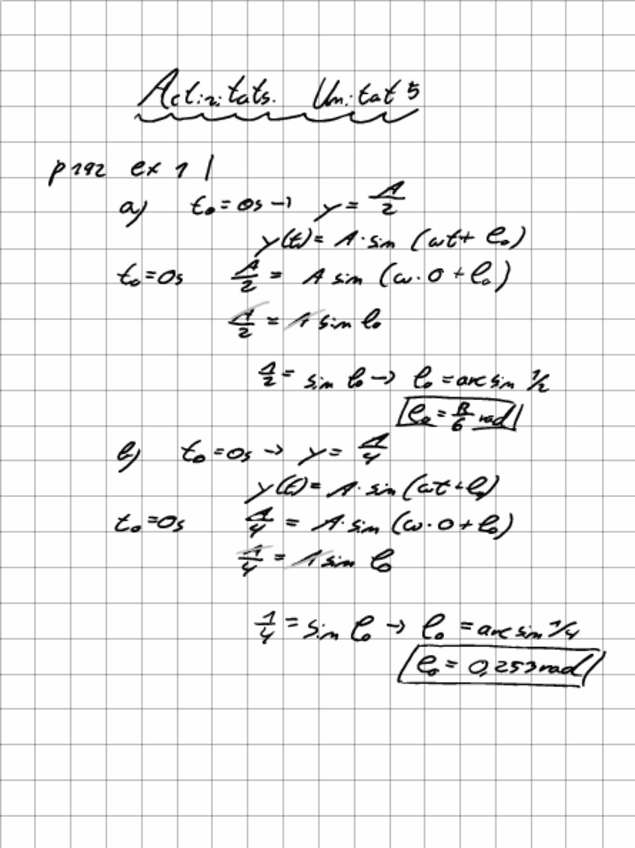 Activitats. Unitat 5
p 192 ex 1 |
a) t₀ = 0s → y = A/2
y(t) = A · sin (ωt + φ₀)
t₀ = 0s A/2 = A sin (ω · 0 + φ₀)
A/2 = A sin φ₀
1/2 = sin φ₀ → φ₀ = arc sin 1/2
φ₀ = π/6 rad
b) t₀ = 0s → y = A/4
y(t) = A · sin (ωt + φ₀)
t₀ = 0s A/4 = A · sin (ω · 0 + φ₀)
A/4 = A sin φ₀
1/4 = sin φ₀ → φ₀ = arc sin 1/4
φ₀ = 0,253 rad